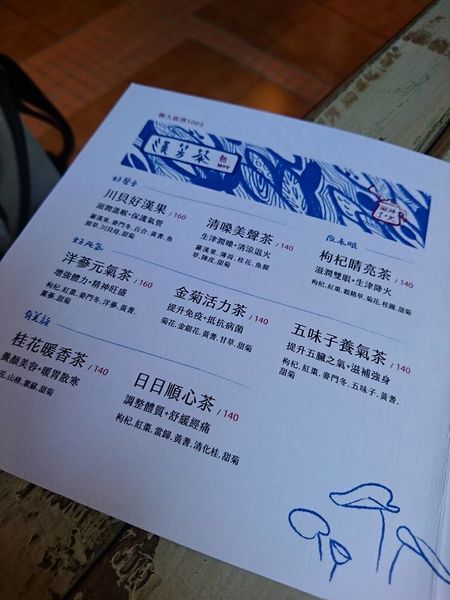 個人低消100$
漢芳茶 熱 HOT
好聲音
川貝好漢果 /160
滋潤溫喉•保護氣管
羅漢果、麥門冬、百合、黃耆、魚
腥草、川貝母、甜菊
清嗓美聲茶 /140
生津潤嗓•清涼退火
羅漢果、薄荷、桂花、魚腥
草、陳皮、甜菊
枸杞睛亮茶 /140
滋潤雙眼•生津降火
枸杞、紅棗、穀精草、菊花、桂圓、甜菊
好元氣
洋蔘元氣茶 /160
增強體力•精神旺盛
枸杞、紅棗、麥門冬、洋蔘、黃耆、
黨蔘、甜菊
金菊活力茶 /140
提升免疫•抵抗病菌
菊花、金銀花、黃耆、甘草、甜菊
五味子養氣茶 /140
提升五臟之氣•滋補強身
枸杞、紅棗、麥門冬、五味子、黃耆、
甜菊
好美顏
桂花暖香茶 /140
養顏美容•暖胃散寒
花、山楂、紫蘇、甜菊
日日順心茶 /140
調整體質•舒緩經痛
枸杞、紅棗、當歸、黃耆、清化桂、甜菊